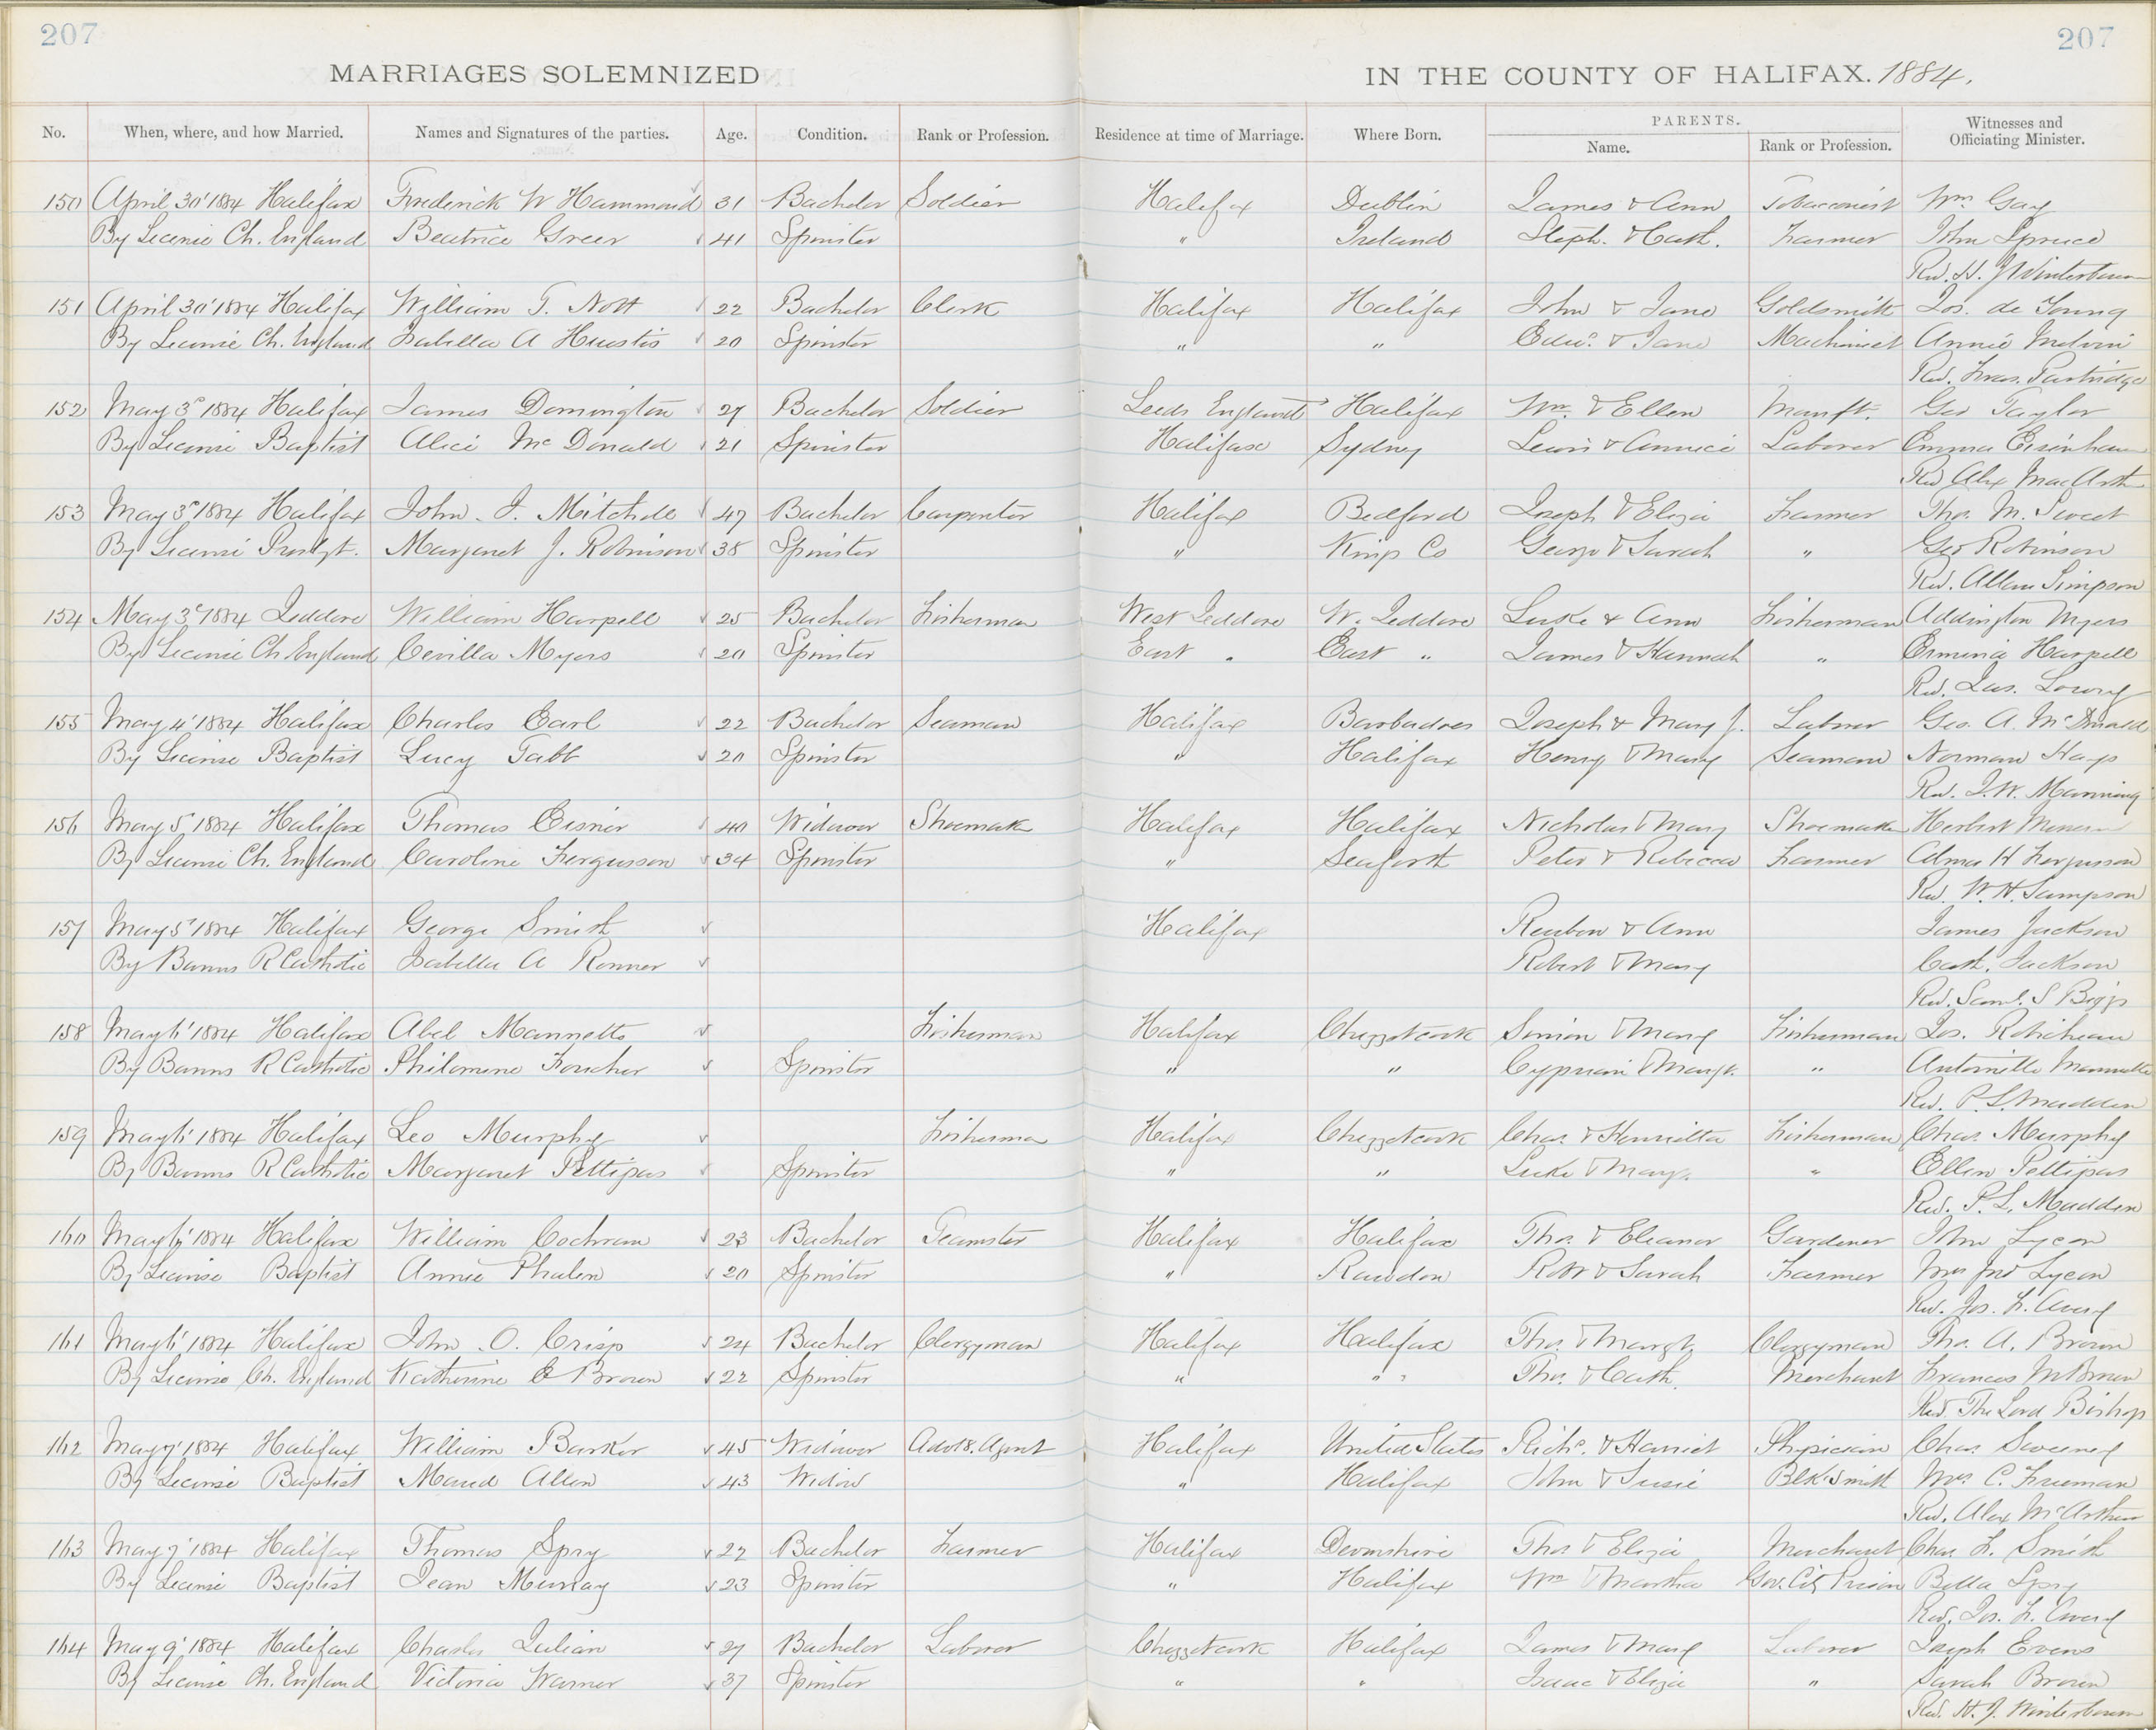 207 207
MARRIAGES SOLEMNIZED IN THE COUNTY OF HALIFAX. 1884.
No. When, where, and how Married. Names and Signatures of the parties. Age. Condition. Rank or Profession. Residence at time of Marriage. Where Born. PARENTS. Name. Rank or Profession. Witnesses and Officiating Minister.
150 April 30' 1884 Halifax Frederick W Hammond 31 Bachelor Soldier Halifax Dublin James & Ann Tobacconist Wm Gay
By License Ch. England Beatrice Greer 41 Spinster " Ireland Steph. & Cath. Farmer John Spruce
Rev. H. J Winterbourn
151 April 30' 1884 Halifax William T. Nott 22 Bachelor Clerk Halifax Halifax John & Jane Goldsmith Jos. de Young
By License Ch. England Isabella A Huestis 20 Spinster " " Edwd. & Jane Machinist Annie Melvin
Rev. Fras. Partridge
152 May 3d 1884 Halifax James Donnington 27 Bachelor Soldier Leeds England Halifax Wm. & Ellen Manft. Geo Taylor
By License Baptist Alice McDonald 21 Spinster Halifax Sydney Lewis & Annie Laborer Emma
Rev Alex MacArth
153 May 3d 1884 Halifax John J. Mitchell 47 Bachelor Carpenter Halifax Bedford Joseph & Eliza Farmer Thos. M. Sweet
By License Presbyt. Margaret J. Robinson 38 Spinster " Kings Co George & Sarah " Geo Robinson
Rev. Allan Simpson
154 May 3d 1884 Jeddore William Harpell 25 Bachelor Fisherman West Jeddore W. Jeddore Luke & Ann Fisherman Addington Myers
By License Ch England Cevilla Myers 20 Spinster East " East " James & Hannah " Ermina Harpell
Rev. Jas. Lowry
155 May 4' 1884 Halifax Charles Earl 22 Bachelor Seaman Halifax Barbadoes Joseph & Mary J. Labrer Geo. A. McDonald
By License Baptist Lucy Tabb 20 Spinster " Halifax Henry & Mary Seaman Norman Hays
Rev. J. W. Manning
156 May 5, 1884 Halifax Thomas Eisnor 40 Widower Shoemaker Halifax Halifax Nicholas & Mary Shoemaker Herbert
By License Ch. England Caroline Fergusson 34 Spinster " Seaforth Peter & Rebecca Farmer Edma H Fergusson
Rev. W. H. Sampson
157 May 5' 1884 Halifax George Smith Halifax Reuben & Ann James Jackson
By Banns R Catholic Isabella A Ronner Robert & Mary Cath. Jackson
Rev. Saml. S Biggs
158 May 6' 1884 Halifax Abel Mannette Fisherman Halifax Chezzetcook Simon & Mary Fisherman Jos. Robicheau
By Banns R Catholic Philomene Foucher Spinster " " Cyprian & Margt. " Antoinette Mannette
Rev. P. L. Madden
159 May 6' 1884 Halifax Leo Murphy Fisherman Halifax Chezzetcook Chas. & Henrietta Fisherman Chas. Murphy
By Banns R Catholic Margaret Pettipas Spinster " " Luke & Margt. " Ellen Pettipas
Rev. P. L. Madden
160 May 6' 1884 Halifax William Cochran 23 Bachelor Teamster Halifax Halifax Thos. & Eleanor Gardener John Lycon
By License Baptist Annie Phalen 20 Spinster " Rawdon Robt & Sarah Farmer Mrs Jno Lycon
Rev. Jos. F. Avery
161 May 6' 1884 Halifax John O. Crisp 24 Bachelor Clergyman Halifax Halifax Thos. & Margt. Clergyman Thos. A. Brown
By License Ch. England Katherine E Brown 22 Spinster " " Thos. & Cath. Merchant Frances M Brown
Rev. The Lord Bishop
162 May 7' 1884 Halifax William Barker 45 Widower Advts. Agent Halifax United States Richd. & Harriet Physician Chas Sweeney
By License Baptist Maud Allen 43 Widow " Halifax John & Susie Blk Smith Mrs. C. Freeman
Rev. Alex McArthur
163 May 7' 1884 Halifax Thomas Spry 22 Bachelor Farmer Halifax Devonshire Thos & Eliza Merchant Chas. F. Smith
By License Baptist Jean Murray 23 Spinster " Halifax Wm & Martha Gov. City Prison Bella Spry
Rev. Jos. F. Avery
164 May 9' 1884 Halifax Charles Julian 27 Bachelor Laborer Chezzetcook Halifax James & Mary Laborer Joseph Evens
By License Ch. England Victoria Warner 37 Spinster " " Isaac & Eliza " Sarah Brown
Rev. H. J. Winterbourn